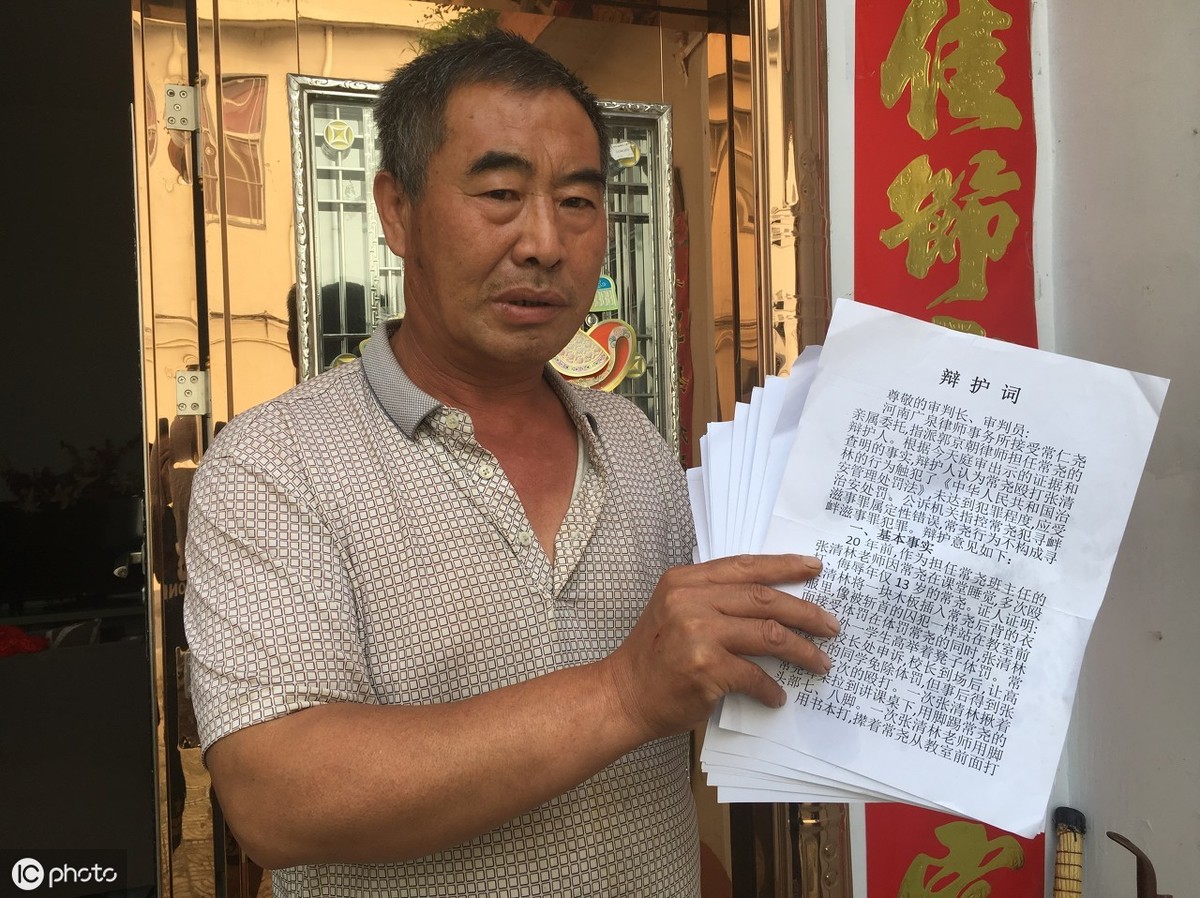 佳
节
辩护词
尊敬的审判长、审判员:
河南广泉律师事务所接受常仁尧
亲属委托,指派郭京朝律师担任常尧的
辩护人。根据今天庭审出示的证据和
查明的事实,辩护人认为常尧殴打张清
林的行为触犯了《中华人民共和国治
安管理处罚法》,未达到犯罪程度,应受
治安处罚。公诉机关指控常尧犯寻衅
滋事罪属定性错误,常尧行为不构成寻
衅滋事罪犯罪。辩护意见如下:
一、基本事实
20年前,作为担任常尧班主任的
张清林老师因常尧在课堂睡觉,多次殴
侮辱年仅13岁的常尧。证人证明,
清林将一块木板插入常尧后背的衣
像被斩首的囚犯一样站在教室前
体罚常尧的同时,张清林
一学生举着凳子体罚。常
长处申诉,校长到场后,让高
的同学免除体罚,但事后得到张
次的殴打。一次张清林揪着
到讲课桌下,用脚踢常尧的
头部七、八脚。一次张清林老师用脚
用书本打,撵着常尧从教室前面打
IC photo